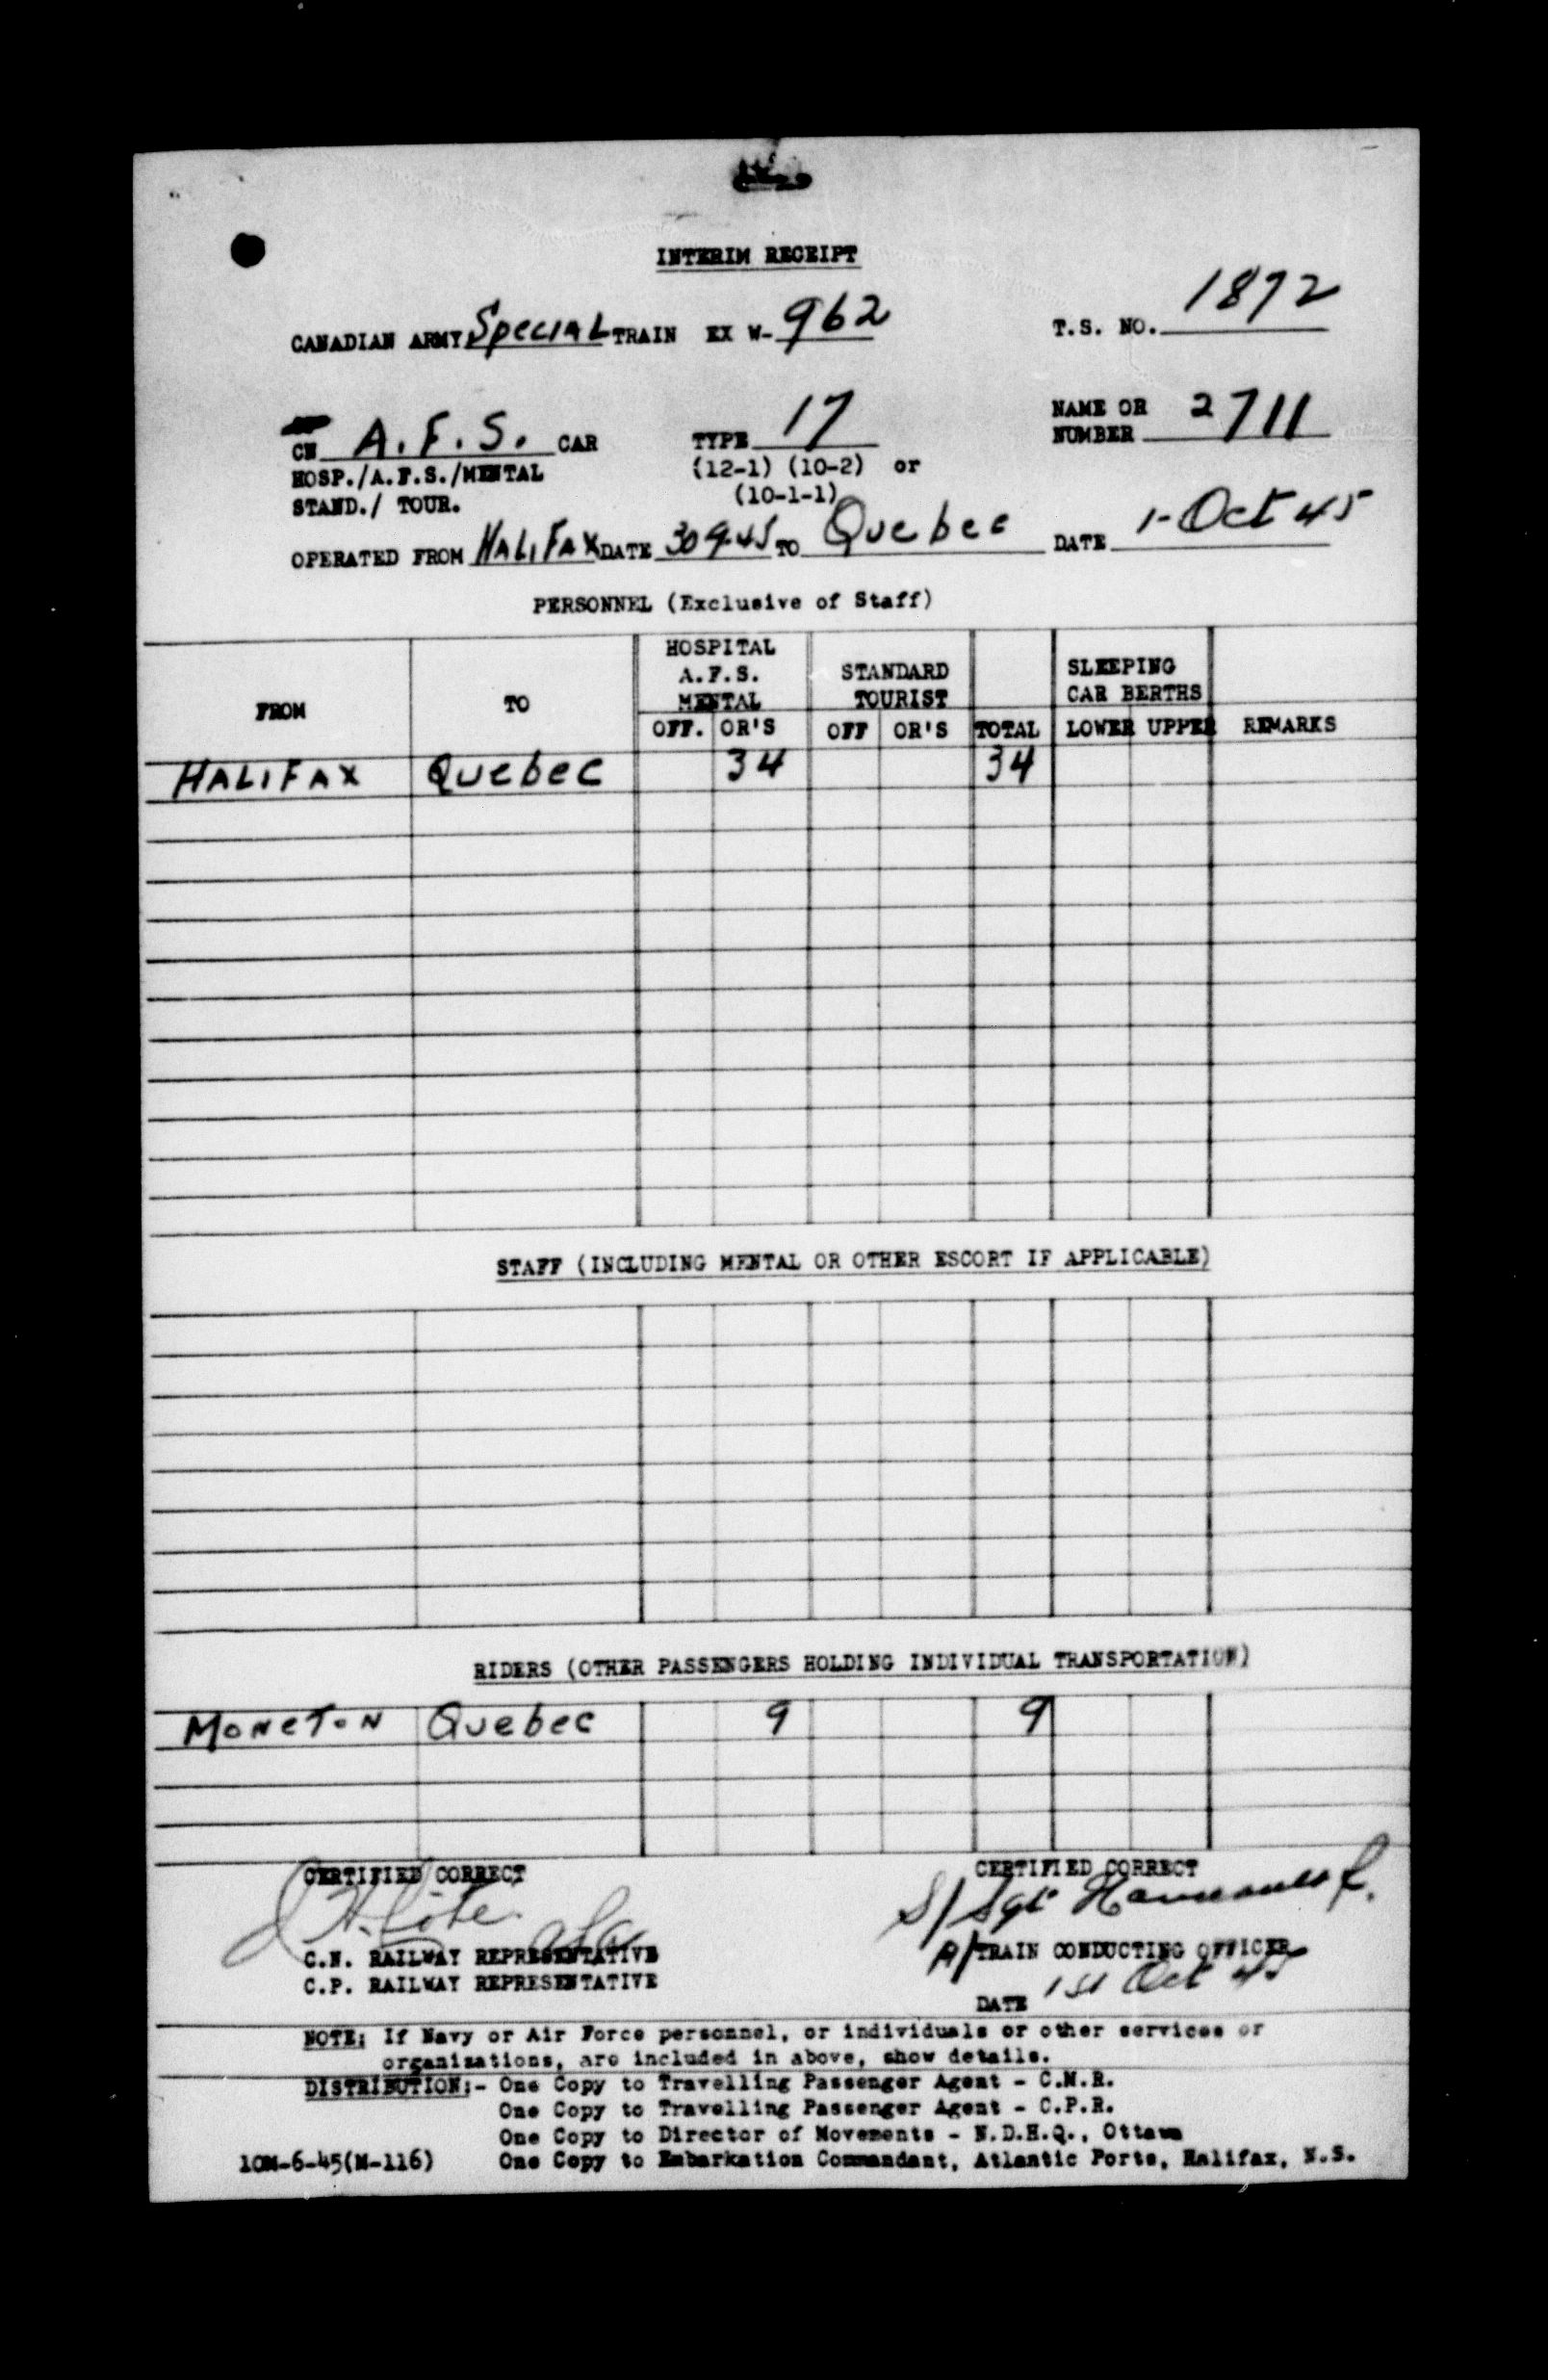 INTERIM RECEIPT
CANADIAN ARMY Special TRAIN EX W- 962 T.S. NO. 1872
CN A.F.S. CAR TYPE 17 NAME OR NUMBER 2711
HOSP./A.F.S./MENTAL (12-1) (10-2) or
STAND./ TOUR. (10-1-1)
OPERATED FROM HALIFAX DATE 30 9-45 TO Quebec DATE 1-Oct 45
PERSONNEL (Exclusive of Staff)
FROM TO HOSPITAL A.F.S. MENTAL STANDARD TOURIST SLEEPING CAR BERTHS
OFF. OR'S OFF OR'S TOTAL LOWER UPPER REMARKS
HALIFAX Quebec 34 34
STAFF (INCLUDING MENTAL OR OTHER ESCORT IF APPLICABLE)
RIDERS (OTHER PASSENGERS HOLDING INDIVIDUAL TRANSPORTATION)
MONCTON Quebec 9 9
CERTIFIED CORRECT CERTIFIED CORRECT
S/Sgt
C.N. RAILWAY REPRESENTATIVE A/TRAIN CONDUCTING OFFICER
C.P. RAILWAY REPRESENTATIVE
DATE 1st Oct 45
NOTE: If Navy or Air Force personnel, or individuals or other services or
organizations, are included in above, show details.
DISTRIBUTION:- One Copy to Travelling Passenger Agent - C.N.R.
One Copy to Travelling Passenger Agent - C.P.R.
One Copy to Director of Movements - N.D.H.Q., Ottawa
10M-6-45(M-116) One Copy to Embarkation Commandant, Atlantic Ports, Halifax, N.S.